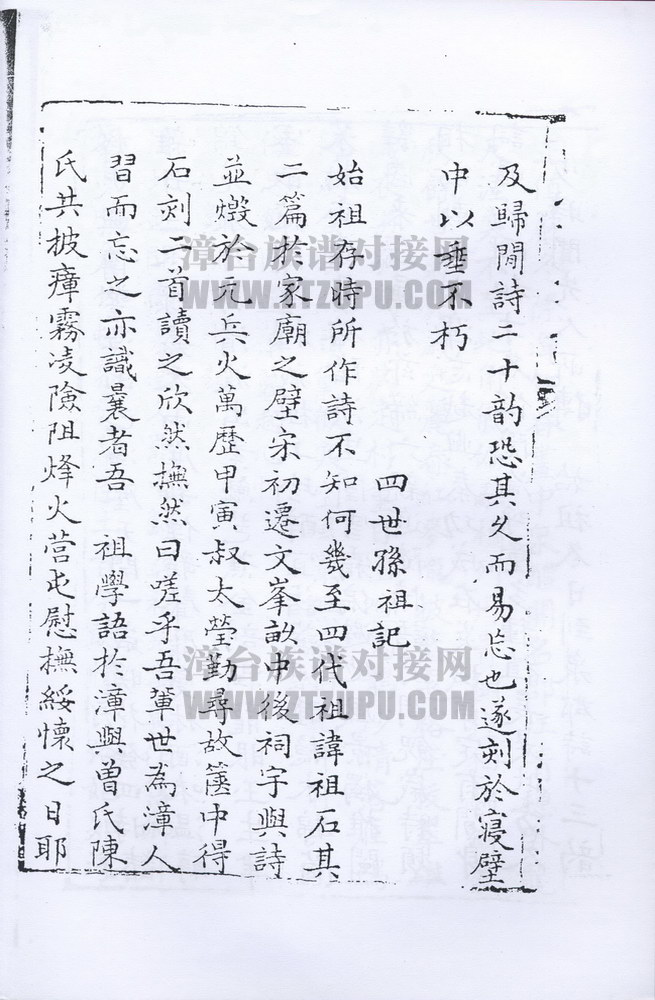 及歸閒詩二十韵恐其久而易忘也遂刻於寢壁
中以垂不朽
四世孫祖記
始祖存時所作詩不知何幾至四代祖諱祖石其
二篇於家廟之壁宋初遷文峯畝中後祠宇與詩
並燬於元兵火萬歷甲寅叔太瑩勤尋故篋中得
石刻二首讀之欣然撫然曰嗟乎吾輩世為漳人
習而忘之亦識曩者吾 祖學語於漳與曾氏陳
氏共披瘴霧凌險阻烽火营屯慰撫綏懷之日耶
漳台族谱对接网
WWW.ZTZUPU.COM
漳台族谱对接网
WWW.ZTZUPU.COM